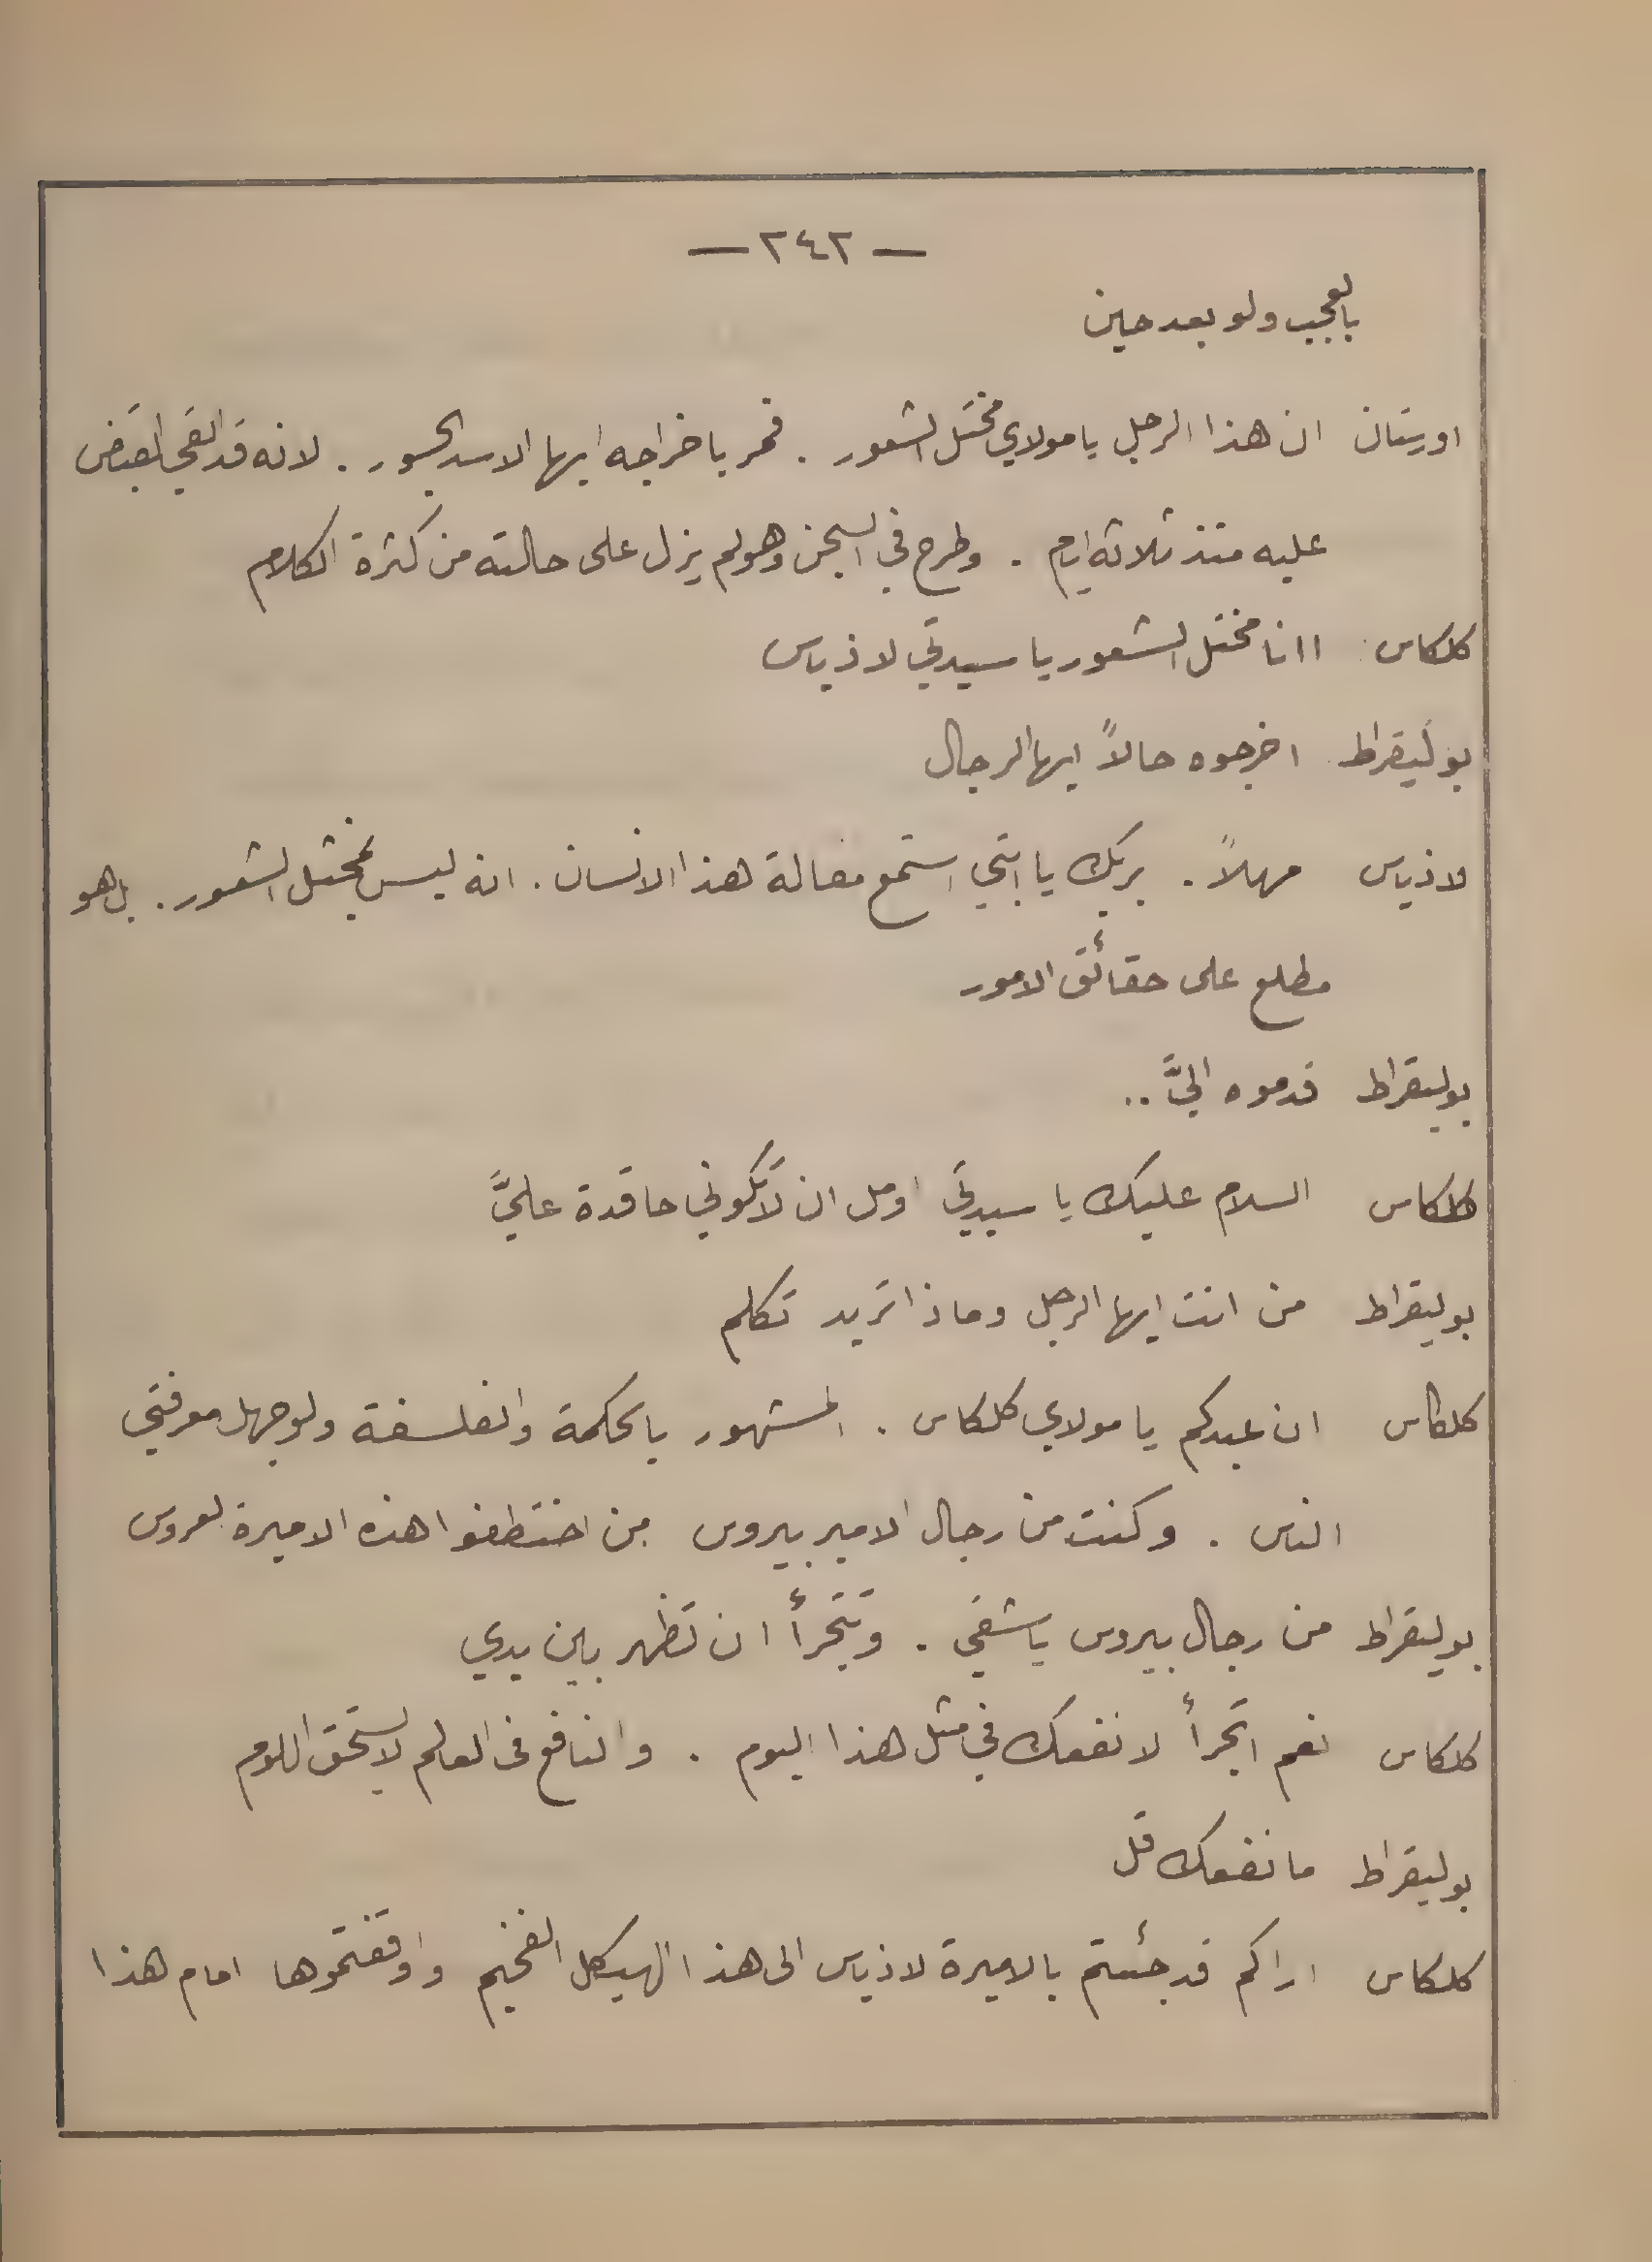 — ٢٤٢ —
بالعجب ولو بعد حين
اورستان ان هذا الرجل يا مولاي مختل الشعور . فمر باخراجه ايها الاسد الجسور . لانه قد القي القبض
عليه منذ ثلاثة ايام . وطرح في السجن وهو لم يزل على حالته من كثرة الكلام
كلكاس اانا مختل الشعور يا سيدتي لاذياس
بوليقراط اخرجوه حالاً ايها الرجال
لاذياس مهلاً . بربك يا ابتي استمع مقالة هذا الانسان . انه ليس بمختل الشعور . بل هو
مطلع على حقائق الامور
بوليقراط قدموه اليَّ ..
كلكاس السلام عليك يا سيدتي اومل ان لا تكوني حاقدة عليَّ
بوليقراط من انت ايها الرجل وماذا تريد تكلم
كلكاس ان عبدكم يا مولاي كلكاس . المشهور بالحكمة والفلسفة ولو جهل معرفتي
الناس . وكنت من رجال الامير بيروس من اختطفوا هذه الاميرة العروس
بوليقراط من رجال بيروس يا شقي . وتتجرأ ان تظهر بين يدي
كلكاس نعم اتجرأ لانفعك في مثل هذا اليوم . والنافع في العالم لا يستحق اللوم
بوليقراط ما نفعك قل
كلكاس اراكم قد جئتم بالاميرة لاذياس الى هذا الهيكل الفخيم واوقفتموها امام هذا